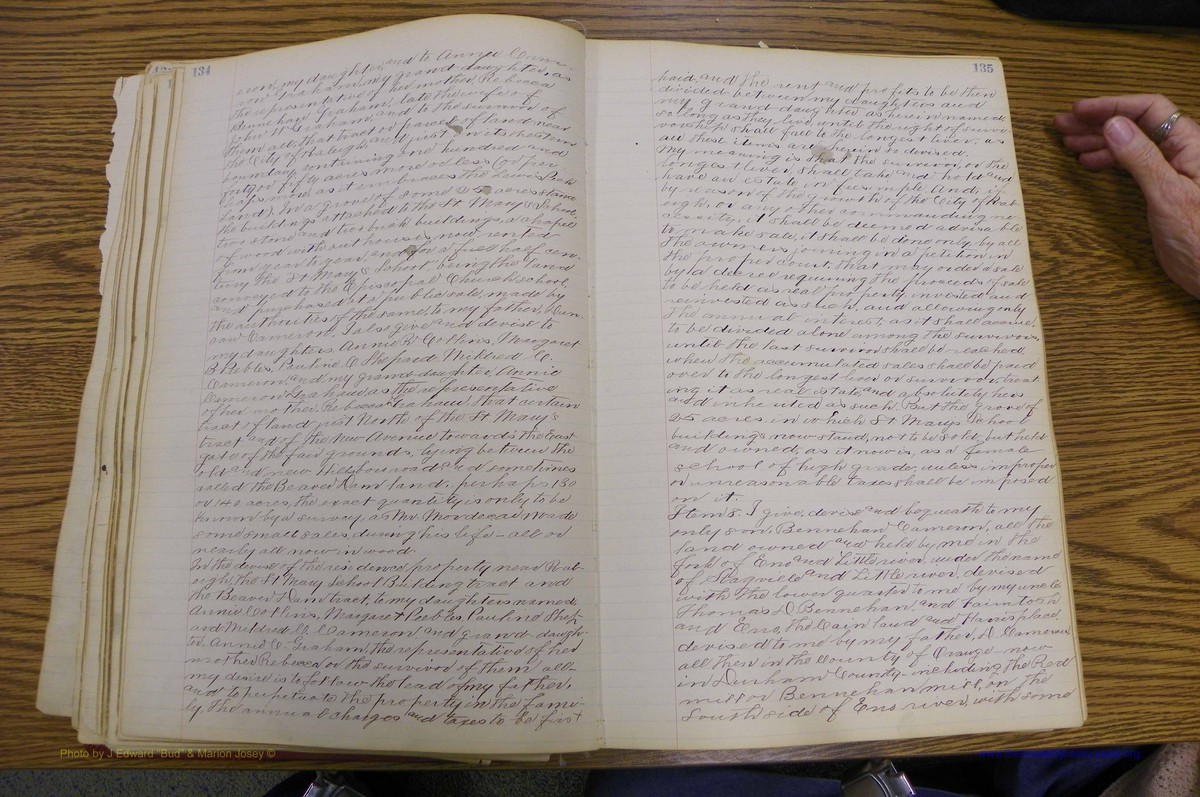 134
eron, my daughter, and to Annie Came-
ron Graham, my grand-daughter, as
the representative of her mother, Rebecca
Bennehan Graham, late the wife of
John W Graham, and to the survivor of
them all, that tract or parcel of land near
the City of Raleigh, and just in its western
boundary, containing one hundred and
forty or fifty acres more or less
land). In a grove of some 25 acres stand
the buildings attached to the St Mary's School,
two stone and two brick buildings, a chapel
of wood with out houses, now rented
from year to year, and for a full half cen-
tury the St Mary's School being the land
conveyed to the Episcopal Church school,
and purchased at a public sale, made by
the authorities of the same, to my father, Dun-
can Cameron. I also give and devise to
my daughters, Annie R Collins, Margaret
B Peebles, Pauline C Shepard, Mildred C.
Cameron, and my grand-daughter Annie
Cameron Graham, as the representative
of her mother, Rebecca Graham, that certain
tract of land just North of the St Mary's
tract and of the New Avenue towards the East
gate of the fair grounds, lying between the
old and new Hillsboro road and sometimes
called the Beaver Dam land, perhaps 130
or 140 acres, the exact quantity is only to be
known by a survey, as Mr Mordecai made
some small sales during his life - all or
nearly all now in wood.
In the devise of the residence property near Ral-
eigh, the St Mary School Building tract and
the Beaver Dam tract, to my daughters named,
Annie Collins, Margaret Peebles, Pauline Shep
and Mildred C. Cameron and grand-daugh-
ter, Annie C. Graham, the representative of her
mother Rebecca or the survivor of them all -
my desire is to follow the lead of my father,
and to perpetuate the property in the fami-
ly. The annual charges and taxes to be first
135
paid, and the rent and profits to be then
divided between my daughters and
my grand-daughter as herein named
so long as they live, until the right of survi-
vorship shall fall to the longest liver, as
all these items are herein devised.
My meaning is that the survivor or the
longest liver, shall take and hold and
have an estate in fee simple. And, if
by reason of the growth of the City of Ral-
eigh, or any other commanding ne-
cessity, it shall be deemed advisable
to make sale, it shall be done only by all
the owners joining in a petition in
the proper court, that may order a sale
by a decree requiring the proceeds of sale
to be held as real property invested and
reinvested as such, and allowing only
the annual interest, as it shall accrue,
to be divided alone among the survivors,
until the last survivor shall be reached
when the accumulated sales shall be paid
over to the longest liver or survivor, treat-
ing it as real estate, and absolutely hers
and inherited as such. But the Grove of
25 acres, in which St Marys School
buildings now stand, not to be sold, but held
and owned, as it now is, as a female
school of high grade, unless improper
or unreasonable taxes shall be imposed
on it.
Item 5. I give, devise and bequeath to my
only son, Bennehan Cameron, all the
land owned and held by me in the
fork of Eno and Little river, under the name
of Stagville and Little river, devised
with the lower quarter to me by my uncle
Thomas D Bennehan, and Fairntosh
and Eno, the Cain land and place,
devised to me by my father, D Cameron
all then in the County of Orange - now
in Durham County - including the Red
mill or Bennehan mill, on the
South side of Eno river, with some
Photo by J Edward "Bud" & Marion Josey ©